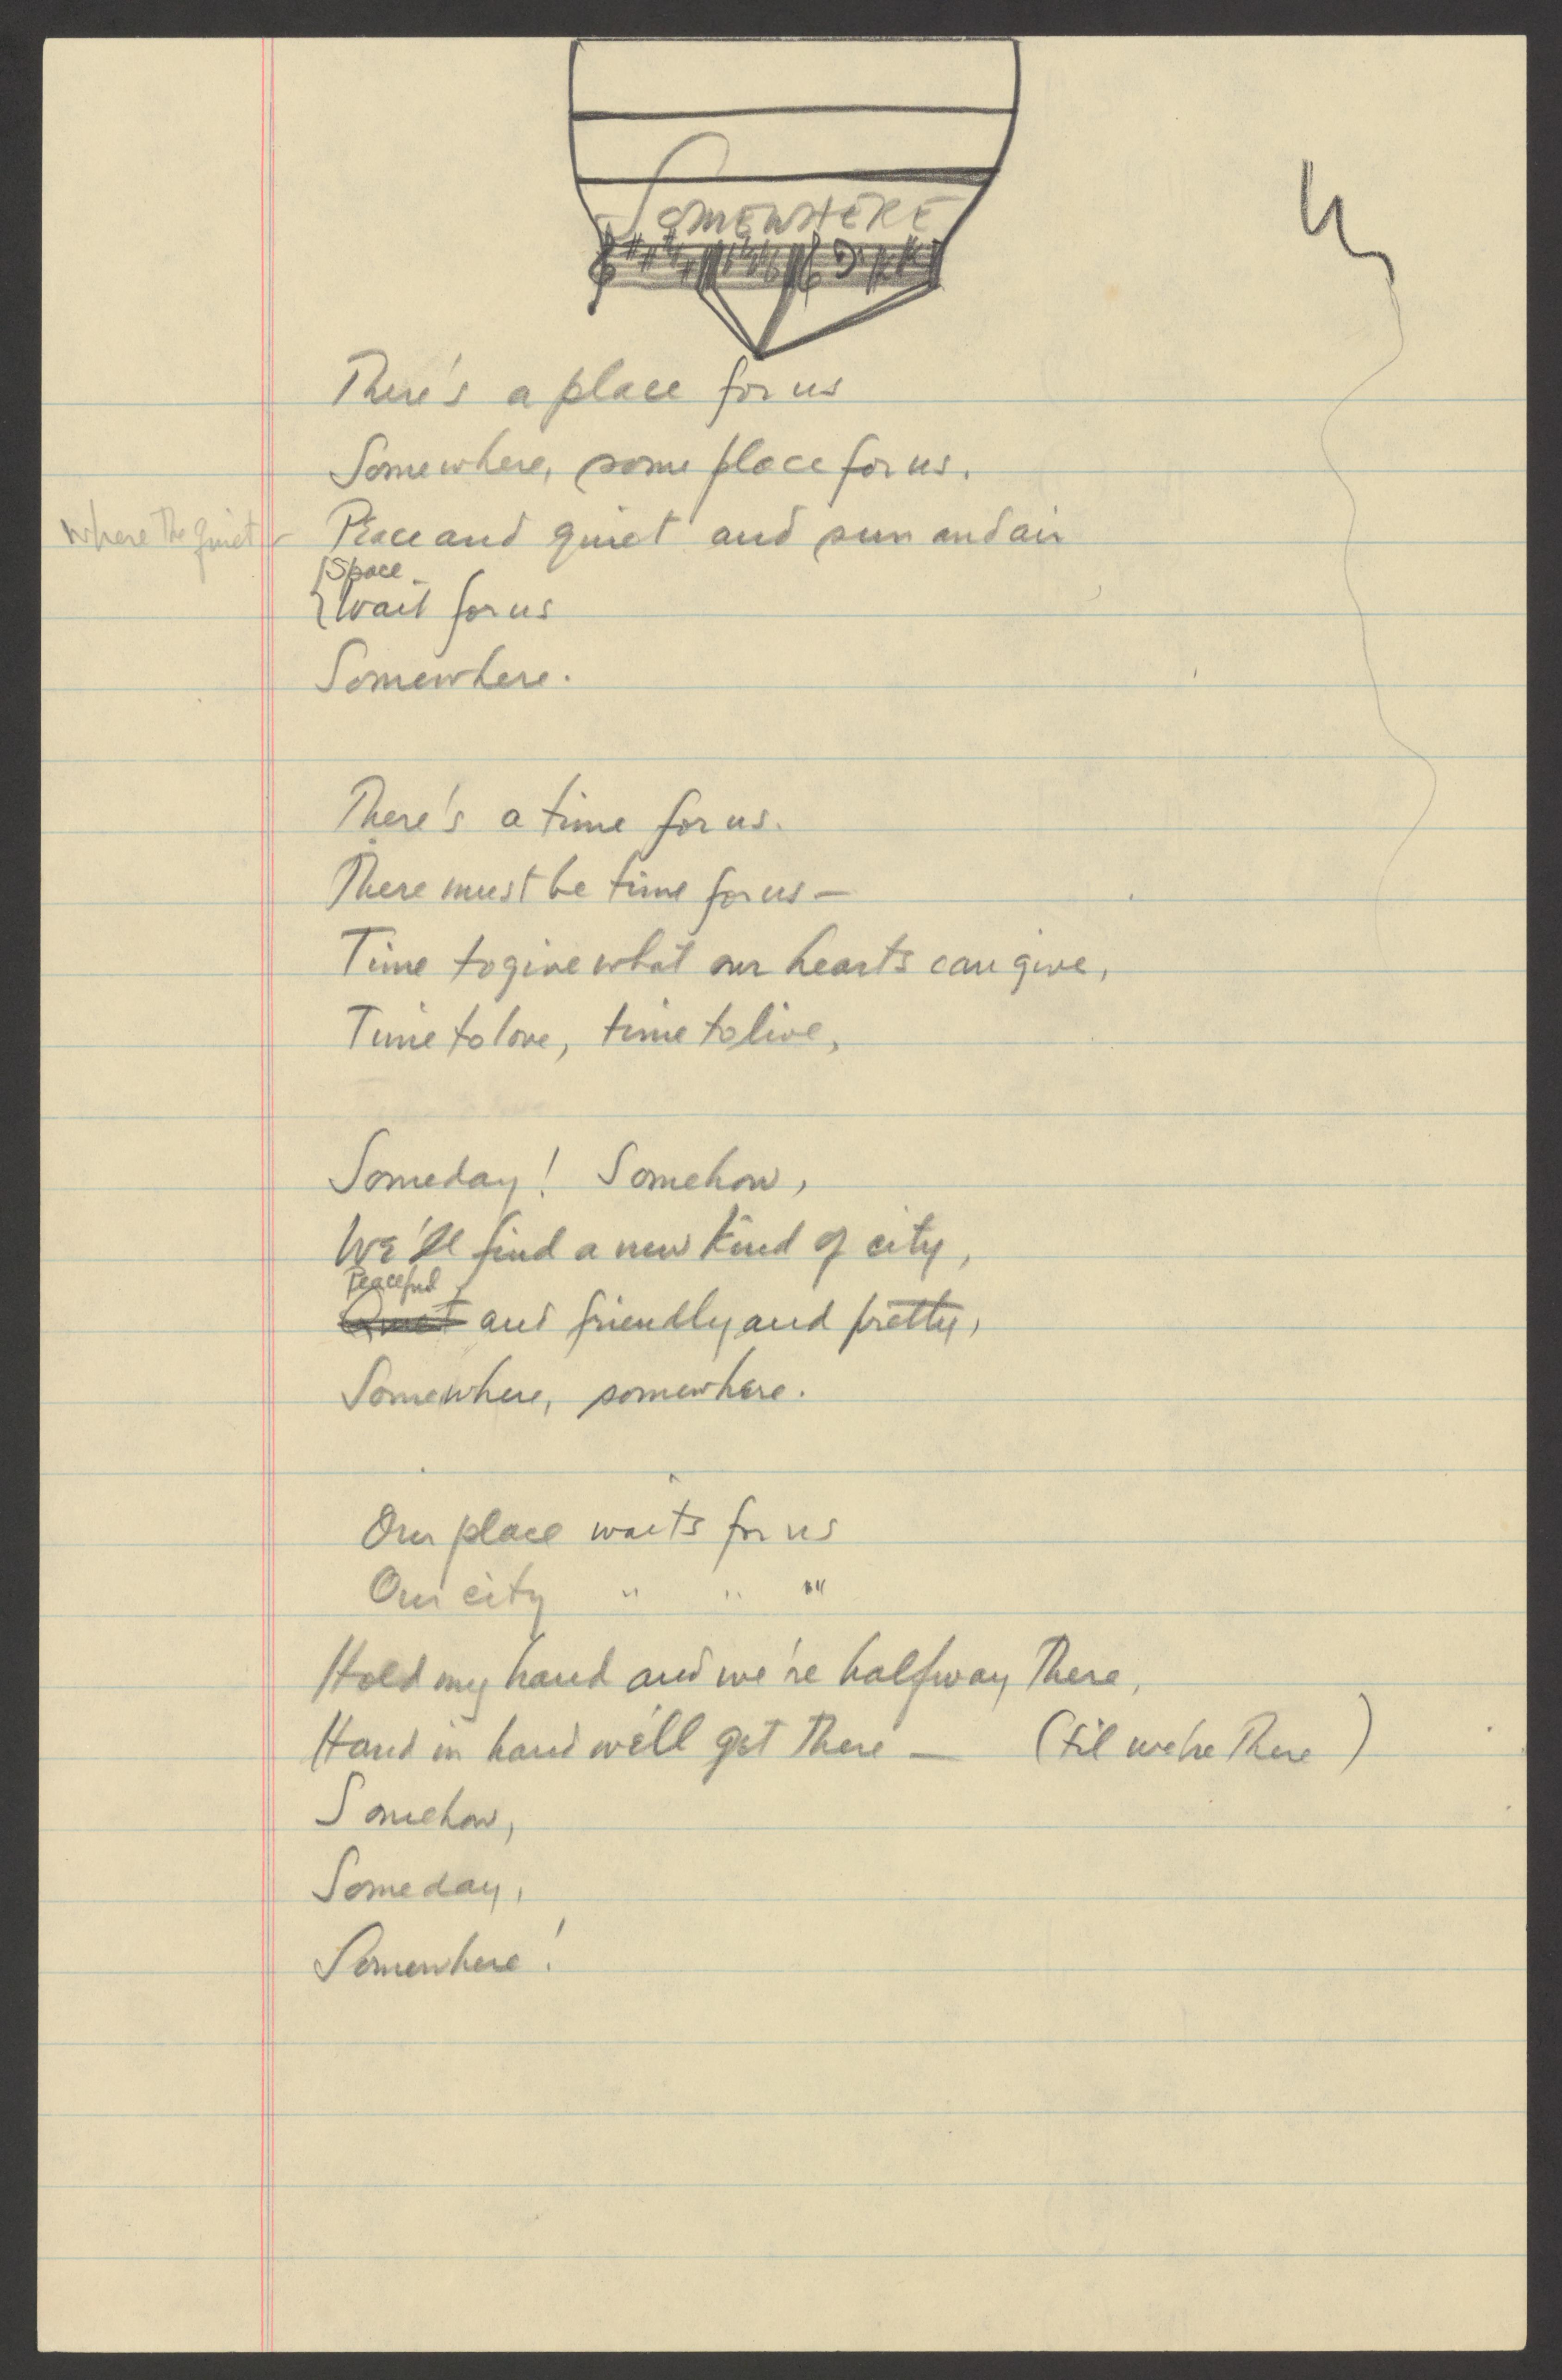 SOMEWHERE
There's a place for us
Somewhere, some place for us.
Where the quiet
Peace and quiet and sun and air
Space
Wait for us
Somewhere.
There's a time for us.
There must be time for us—
Time to give what our hearts can give,
Time to love, time to live,
Someday! Somehow,
We'll find a new kind of city,
Peaceful
Quiet and friendly and pretty,
Somewhere, somewhere.
Our place waits for us
Our city " " "
Hold my hand and we're halfway there,
Hand in hand we'll get there — (til we're there)
Somehow,
Someday,
Somewhere!